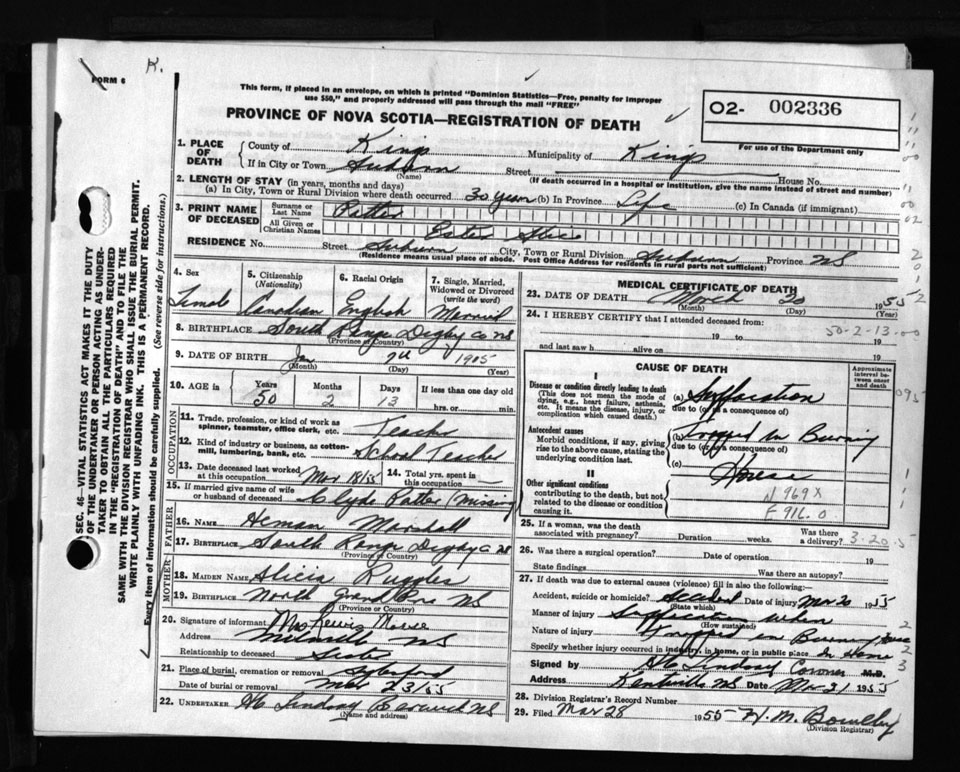 K.
FORM 6
This form, if placed in an envelope, on which is printed "Dominion Statistics—Free, penalty for improper
use $50," and properly addressed will pass through the mail "FREE"
PROVINCE OF NOVA SCOTIA—REGISTRATION OF DEATH
02- 002336
For use of the Department only
SEC. 46—VITAL STATISTICS ACT MAKES IT THE DUTY
OF THE UNDERTAKER OR PERSON ACTING AS UNDER-
TAKER TO OBTAIN ALL THE PARTICULARS REQUIRED
IN THE "REGISTRATION OF DEATH" AND TO FILE THE
SAME WITH THE DIVISION REGISTRAR WHO SHALL ISSUE THE BURIAL PERMIT.
WRITE PLAINLY WITH UNFADING INK. THIS IS A PERMANENT RECORD.
Every item of information should be carefully supplied. (See reverse side for instructions.)
1. PLACE OF DEATH
County of Kings Municipality of Kings
If in City or Town Auburn Street House No.
(Name) (If death occurred in a hospital or institution, give the name instead of street and number)
2. LENGTH OF STAY (in years, months and days)
(a) In City, Town or Rural Division where death occurred 30 years (b) In Province Life (c) In Canada (if immigrant)
3. PRINT NAME OF DECEASED
Surname or Last Name
All Given or Christian Names Alice
RESIDENCE No. Street Auburn City, Town or Rural Division Auburn Province NS
(Residence means usual place of abode. Post Office Address for residents in rural parts not sufficient)
4. Sex Female
5. Citizenship (Nationality) Canadian
6. Racial Origin English
7. Single, Married, Widowed or Divorced (write the word) Married
8. BIRTHPLACE South Range Digby Co NS
(Province or Country)
9. DATE OF BIRTH Jan 7th 1905
(Month) (Day) (Year)
10. AGE in Years 50 Months 2 Days 13 If less than one day old
hrs. or min.
OCCUPATION
11. Trade, profession, or kind of work as spinner, teamster, office clerk, etc. Teacher
12. Kind of industry or business, as cotton-mill, lumbering, bank, etc. School Teacher
13. Date deceased last worked at this occupation Mar 18/55 14. Total yrs. spent in this occupation
15. If married give name of wife or husband of deceased Clyde (missing)
FATHER
16. NAME Heman Marshall
17. BIRTHPLACE South Range Digby Co NS
(Province or Country)
MOTHER
18. MAIDEN NAME Alicia Ruggles
19. BIRTHPLACE North NS
(Province or Country)
20. Signature of informant Mrs Lewis
Address NS
Relationship to deceased Sister
21. Place of burial, cremation or removal Aylesford
Date of burial or removal Mar 23/55
22. UNDERTAKER H C Lindsay Berwick NS
(Name and address)
MEDICAL CERTIFICATE OF DEATH
23. DATE OF DEATH March 20 1955
(Month) (Day) (Year)
24. I HEREBY CERTIFY that I attended deceased from:
50-2-13-00
19 to 19
and last saw h alive on 19
CAUSE OF DEATH
Approximate interval between onset and death
I
Disease or condition directly leading to death
(This does not mean the mode of dying, e.g., heart failure, asthenia, etc. It means the disease, injury, or complication which caused death.)
(a) Suffocation
due to (or as a consequence of)
Antecedent causes
Morbid conditions, if any, giving rise to the above cause, stating the underlying condition last.
(b) Trapped in Burning
due to (or as a consequence of)
(c) House
II
Other significant conditions
contributing to the death, but not related to the disease or condition causing it.
N 969X
E 916.0
25. If a woman, was the death associated with pregnancy? Duration weeks. Was there a delivery? 3-20-5
26. Was there a surgical operation? Date of operation 19
State findings Was there an autopsy?
27. If death was due to external causes (violence) fill in also the following:
Accident, suicide or homicide? Accident Date of injury Mar 20 1955
(State which)
Manner of injury Suffocation when
(How sustained)
Nature of injury Trapped in Burning House
Specify whether injury occurred in industry, in home, or in public place In Home
Signed by H C Lindsay Coroner M.D.
Address Kentville NS Date Mar 21 1955
28. Division Registrar's Record Number
29. Filed Mar 28 1955 H. M. Bowlby
(Division Registrar)